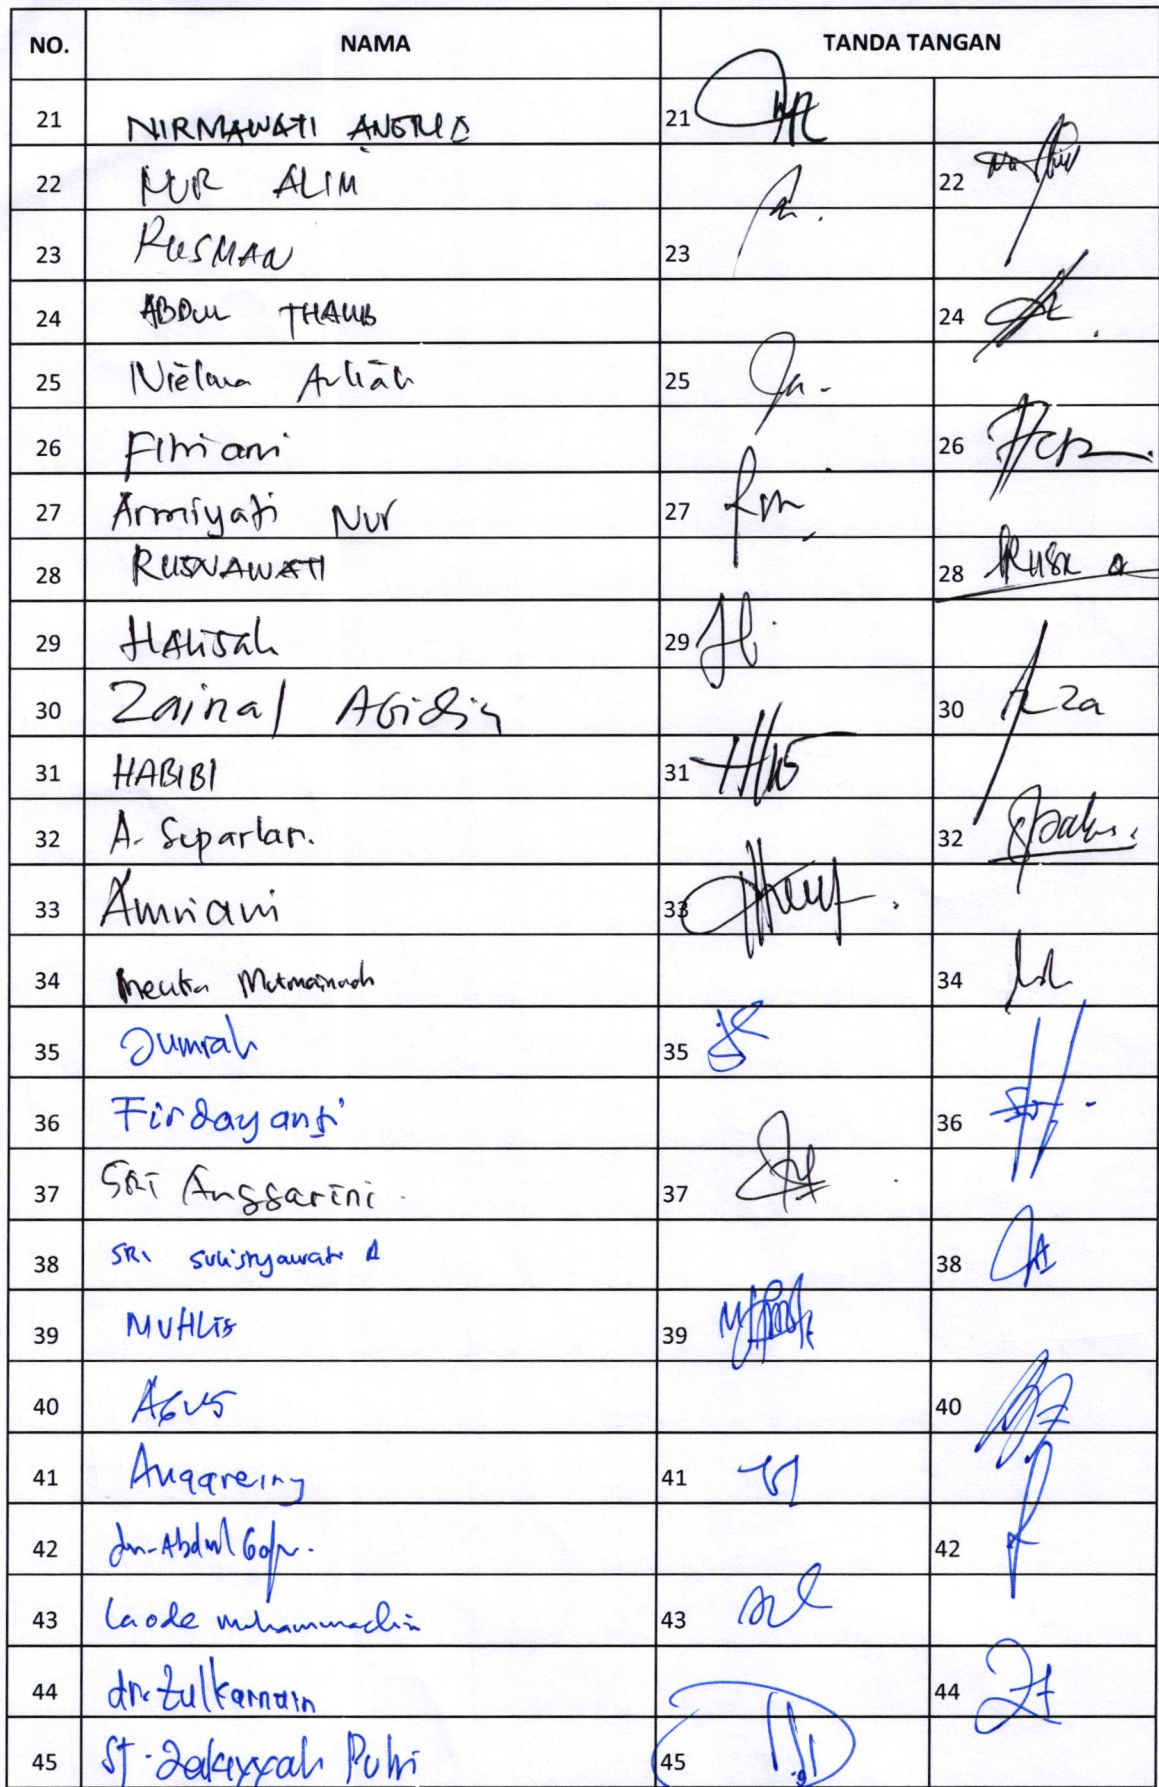 NO. NAMA TANDA TANGAN
21 NIRMAWATI 21
22 NUR ALIM 22
23 RUSMAN 23
24 ABDUL THALIB 24
25 25
26 Fitriani 26
27 Armiyati Nur 27
28 RUSNAWATI 28
29 HALISAH 29
30 Zainal Abidin 30
31 HABIBI 31
32 A. Suparlan. 32
33 Amriani 33
34 Meutia Mutmainnah 34
35 Jumrah 35
36 Firdayanti 36
37 SRI Anggarini 37
38 SRI Sulistyawati A 38
39 MUHLIS 39
40 AGUS 40
41 Anggreiny 41
42 dr. Abdul Gafur. 42
43 Laode muhammad 43
44 dr. Zulkarnain 44
45 St. Zakiyyah Putri 45